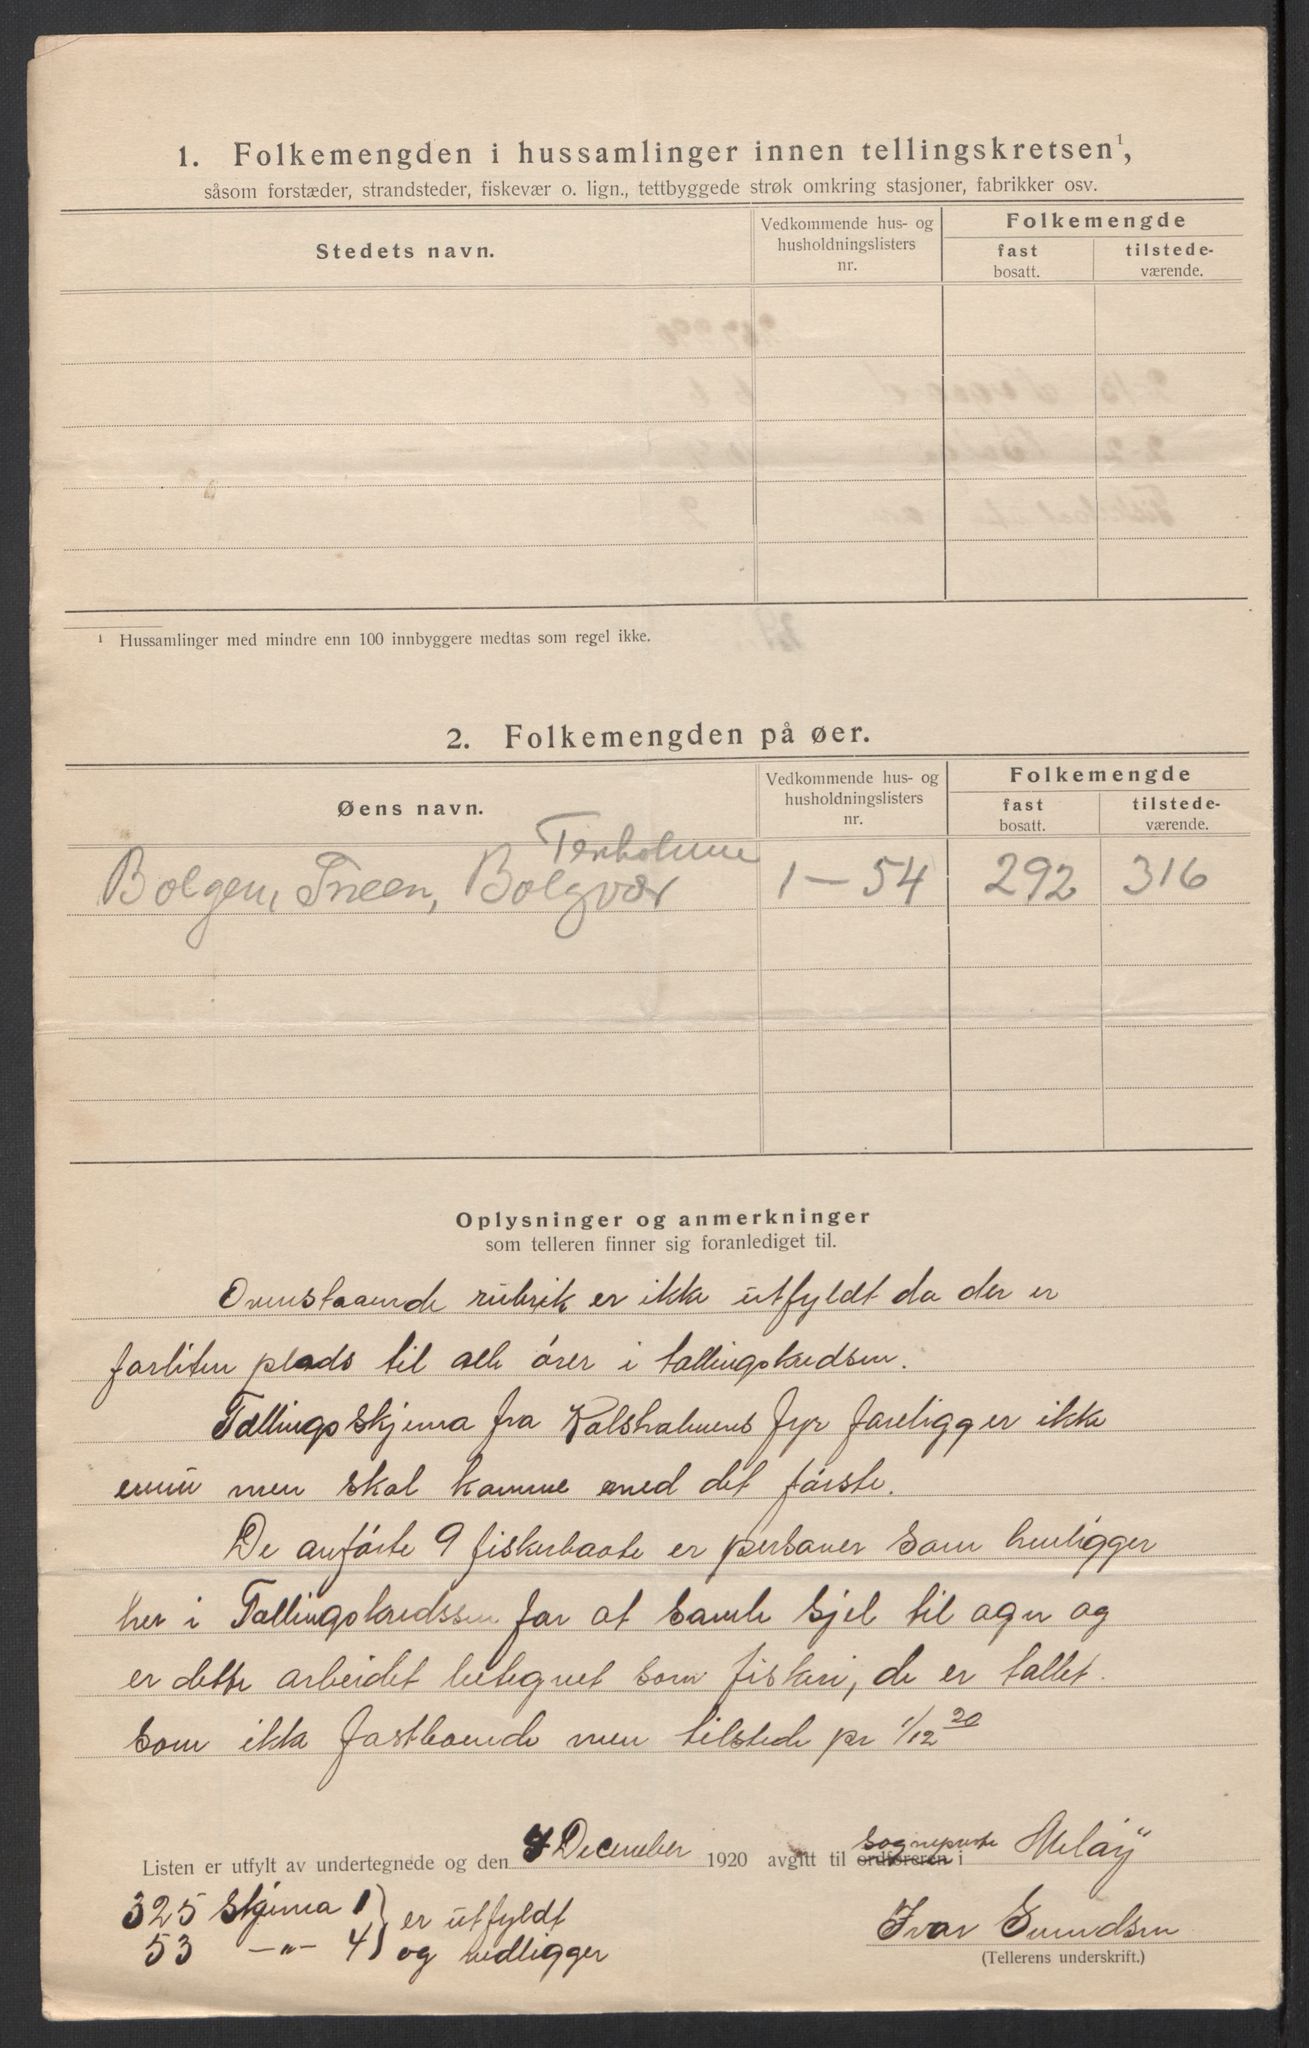 1. Folkemengden i hussamlinger innen tellingskretsen¹,
såsom forstæder, strandsteder, fiskevær o. lign., tettbyggede strøk omkring stasjoner, fabrikker osv.
Stedets navn.
Vedkommende hus- og husholdningslisters nr.
Folkemengde
fast bosatt.
tilstede-værende.
¹ Hussamlinger med mindre enn 100 innbyggere medtas som regel ikke.
2. Folkemengden på øer.
Øens navn.
Vedkommende hus- og husholdningslisters nr.
Folkemengde
fast bosatt.
tilstede-værende.
Tenholmene
Bolgen, Treen, Bolgvær 1 — 54 292 316
Oplysninger og anmerkninger
som telleren finner sig foranlediget til.
Ovenstaaende rubrik er ikke utfyldt da der er
forliten plads til alle öer i tællingskredsen.
Tællingsskjema fra Kalsholmens fyr foreligger ikke
ennu men skal komme med det förste.
De anförte 9 fiskerbaate er personer som henligger
her i Tællingskredssen for at samle sjel til agn og
er dette arbeidet betegnet som fiskeri, de er tallet
som ikke fastboende men tilstede pr 1/12 20
Listen er utfylt av undertegnede og den 7 December 1920 avgitt til ordføreren sogneprest i Melöy
325 Skjema 1 } er utfyldt
53 —„— 4 } og vedligger
Ivar Smundsen
(Tellerens underskrift.)